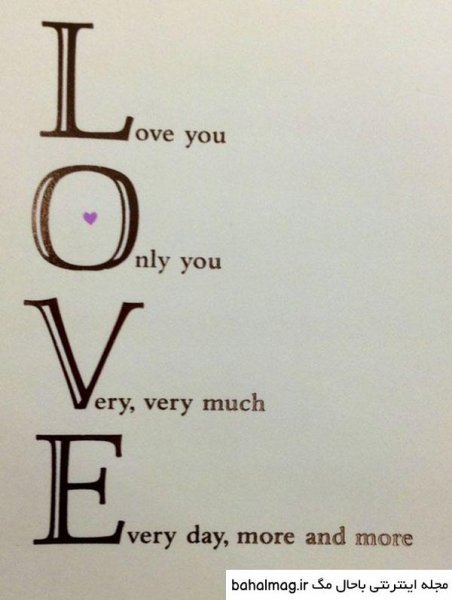 Love you
Only you
Very, very much
Every day, more and more
مجله اینترنتی باحال مگ bahalmag.ir